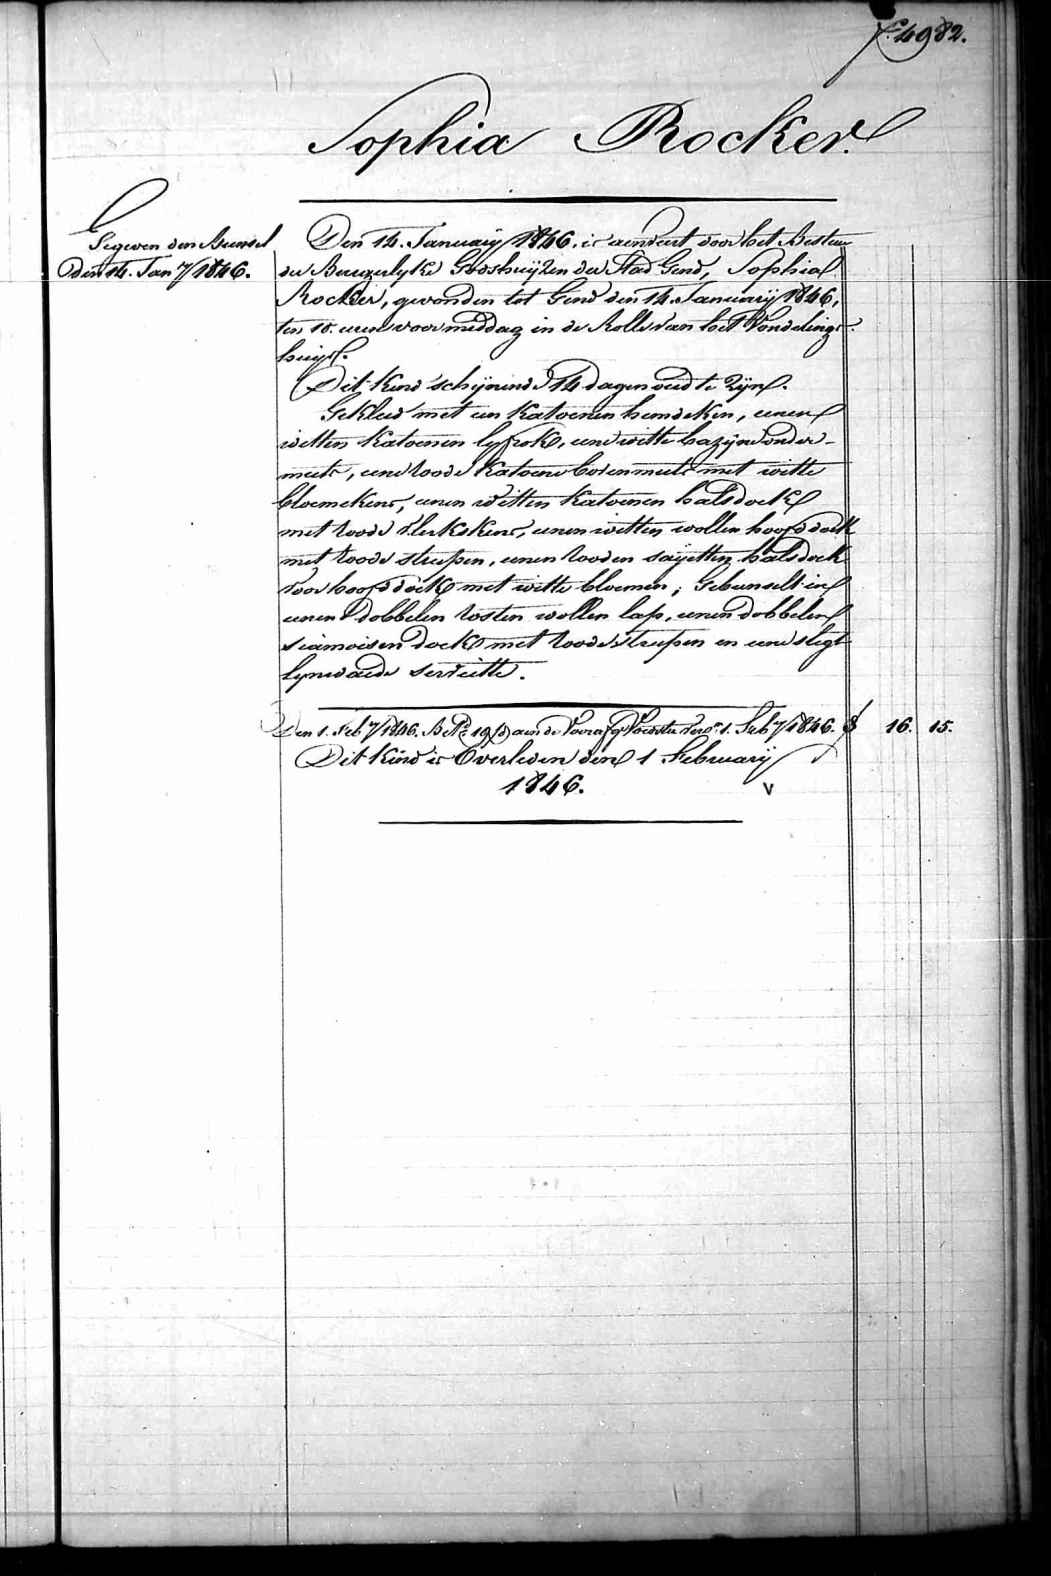 f.º 4982.
Sophia Rocker.
Gegeven den Bunsel
den 14. Jan.ry 1846.
Den 14. January 1846, is aenveert door het Bestuer
der Burgerlyke Godshuijzen der Stad Gend, Sophia
Rocker, gevonden tot Gend den 14. January 1846,
ten 10. uren voormiddag in de Rolle van het Vondelings-
huijs.
Dit kind schijnende 14 dagen oud te zijn.
Gekleed met een katoenen hemdeken, eenen
witten katoenen lyfrok, eene witte bazyne onder-
muts, eene roode katoene bovenmuts met witte
bloemekens, eenen witten katoenen halsdoek
met roode vlekskens, eenen witten wollen hoofddoek
met roode streepen, eenen rooden sayetten halsdoek
voor hoofddoek met witte bloemen; Gebunselt in
eenen dobbelen rosten wollen lap, eenen dobbelen
siamoisen doek met roode streepen en eene slegte
lynwaede serviette.
Den 1. Feb.ry 1846. B N.º 19 aen de Voorafg. Voedster ver. 1. Feb.ry 1846. 16. 15.
Dit kind is Overleden den 1 February
1846.
v